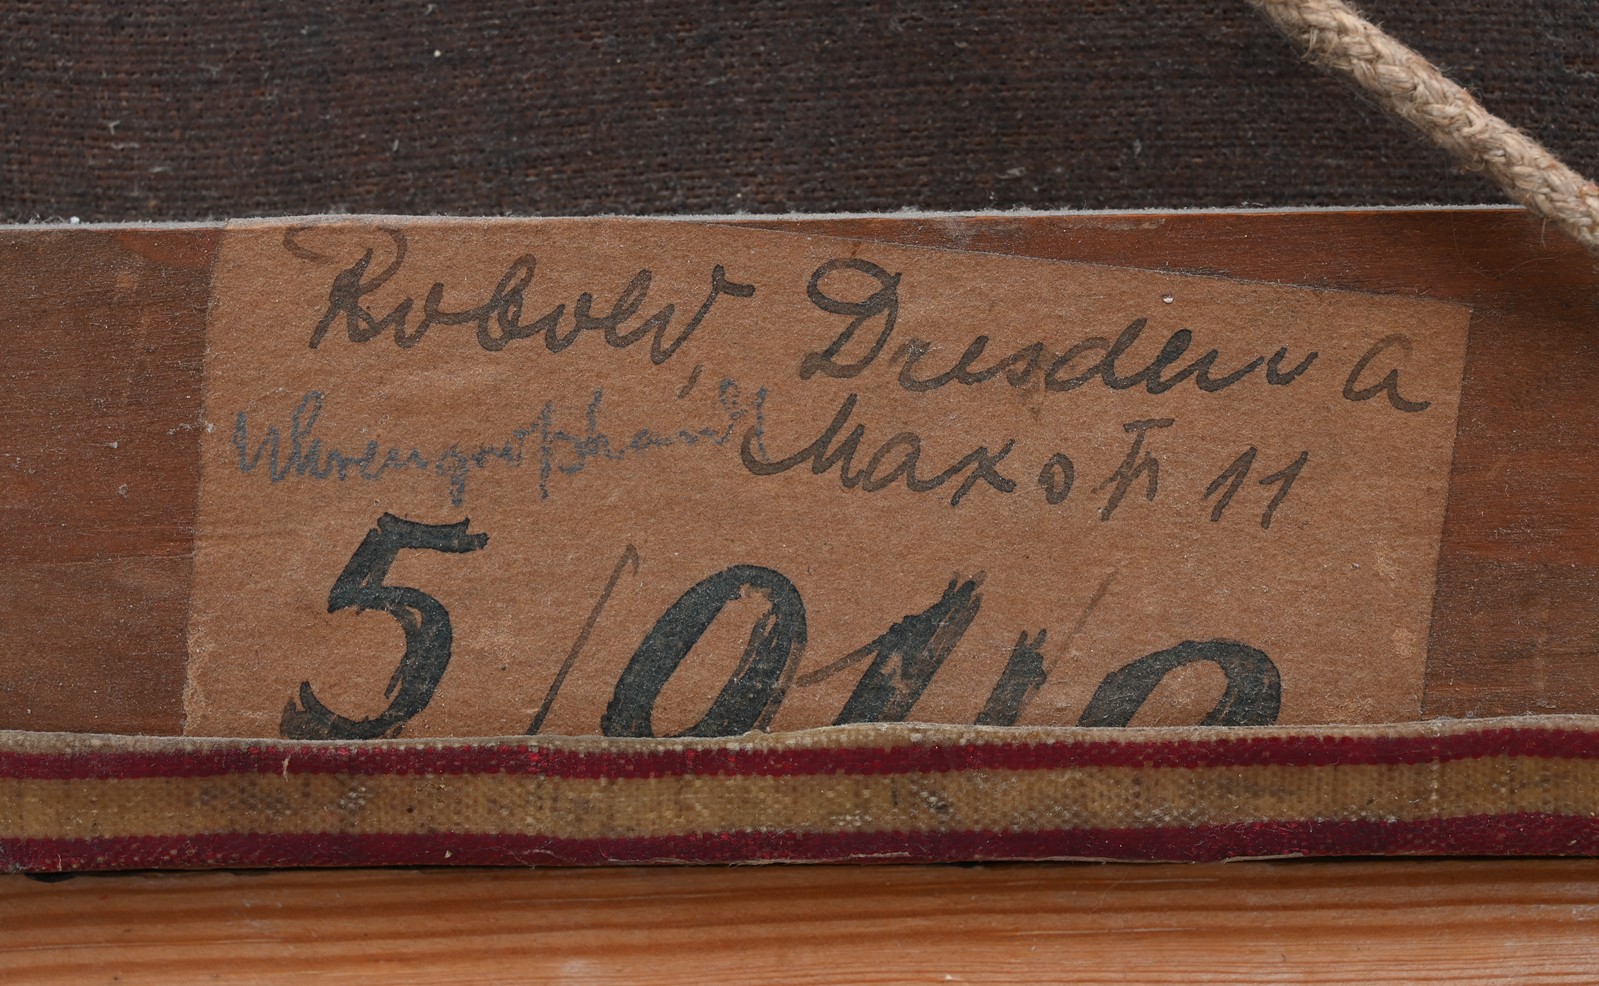 Robold, Dresden A
Uhrengroßhandl
Maxstr 11
5/01